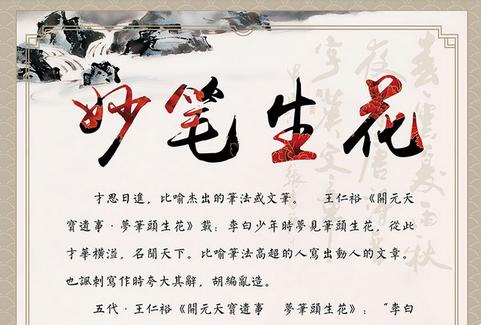 妙笔生花
才思日進，比喻杰出的筆法或文筆。 王仁裕《開元天
寶遺事·夢筆頭生花》載：李白少年時夢見筆頭生花，從此
才華橫溢，名聞天下。比喻筆法高超的人寫出動人的文章。
也諷刺寫作時夸大其辭，胡編亂造。
五代·王仁裕《開元天寶遺事 夢筆頭生花》：“李白